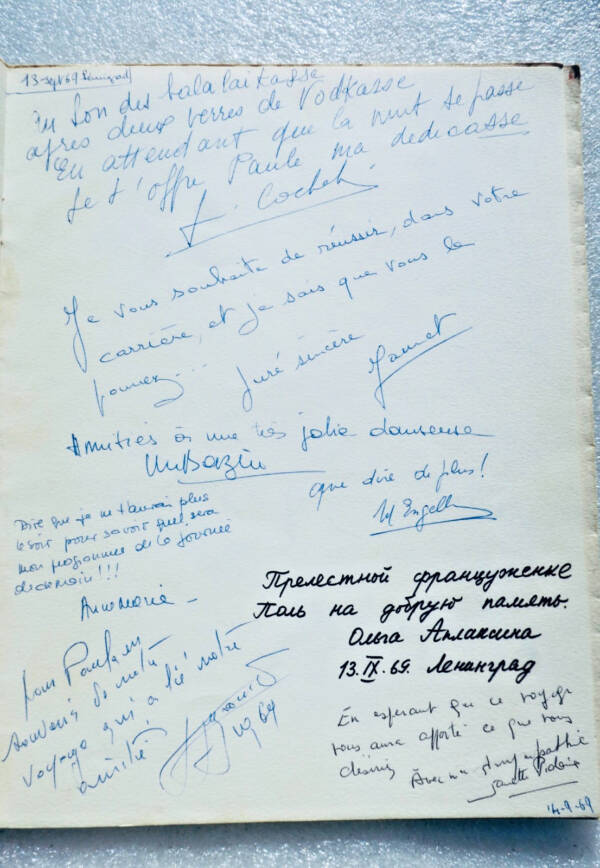 13-sept 69 Leningrad
Au Son des balalaikasse
après deux verres de Vodkasse
En attendant que la nuit se passe
Je t'offre Paule ma dedicasse
Cochet
Je vous souhaite de réussir, dans votre
carrière, et je sais que vous le
pouvez...
Juré sincère
Jamet
Amitiés à une très jolie danseuse
Bazin
que dire de plus!
M Engel
Dire que je ne t'aurai plus
le soir pour savoir quel sera
mon programme de la journée
de demain!!!
Annemarie
Прелестной француженке
Поль на добрую память.
Ольга Аплаксина
13.IX.69. Ленинград
pour Paule en
souvenir de notre
voyage qui a lié notre
amitié
69
En esperant que ce voyage
vous aura apporté ce que vous
désiriez
Avec ma sympathie
14-9-69